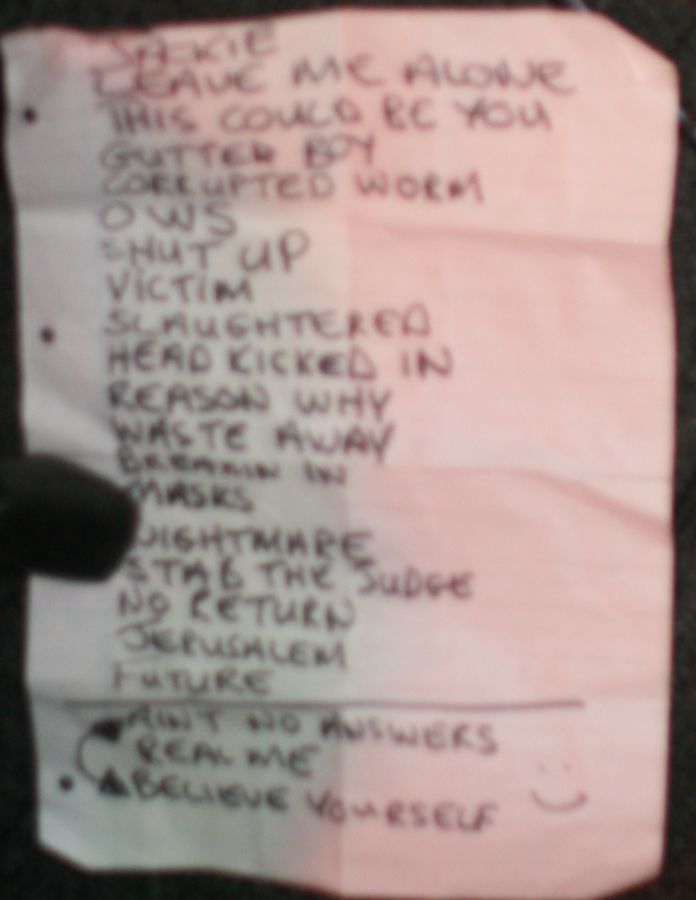 JACKIE
LEAVE ME ALONE
THIS COULD BE YOU
GUTTER BOY
CORRUPTED WORM
OWS
SHUT UP
VICTIM
SLAUGHTERED
HEAD KICKED IN
REASON WHY
WASTE AWAY
BREAKIN IN
MASKS
NIGHTMARE
STAB THE JUDGE
NO RETURN
JERUSALEM
FUTURE
AINT NO ANSWERS
REAL ME
BELIEVE YOURSELF